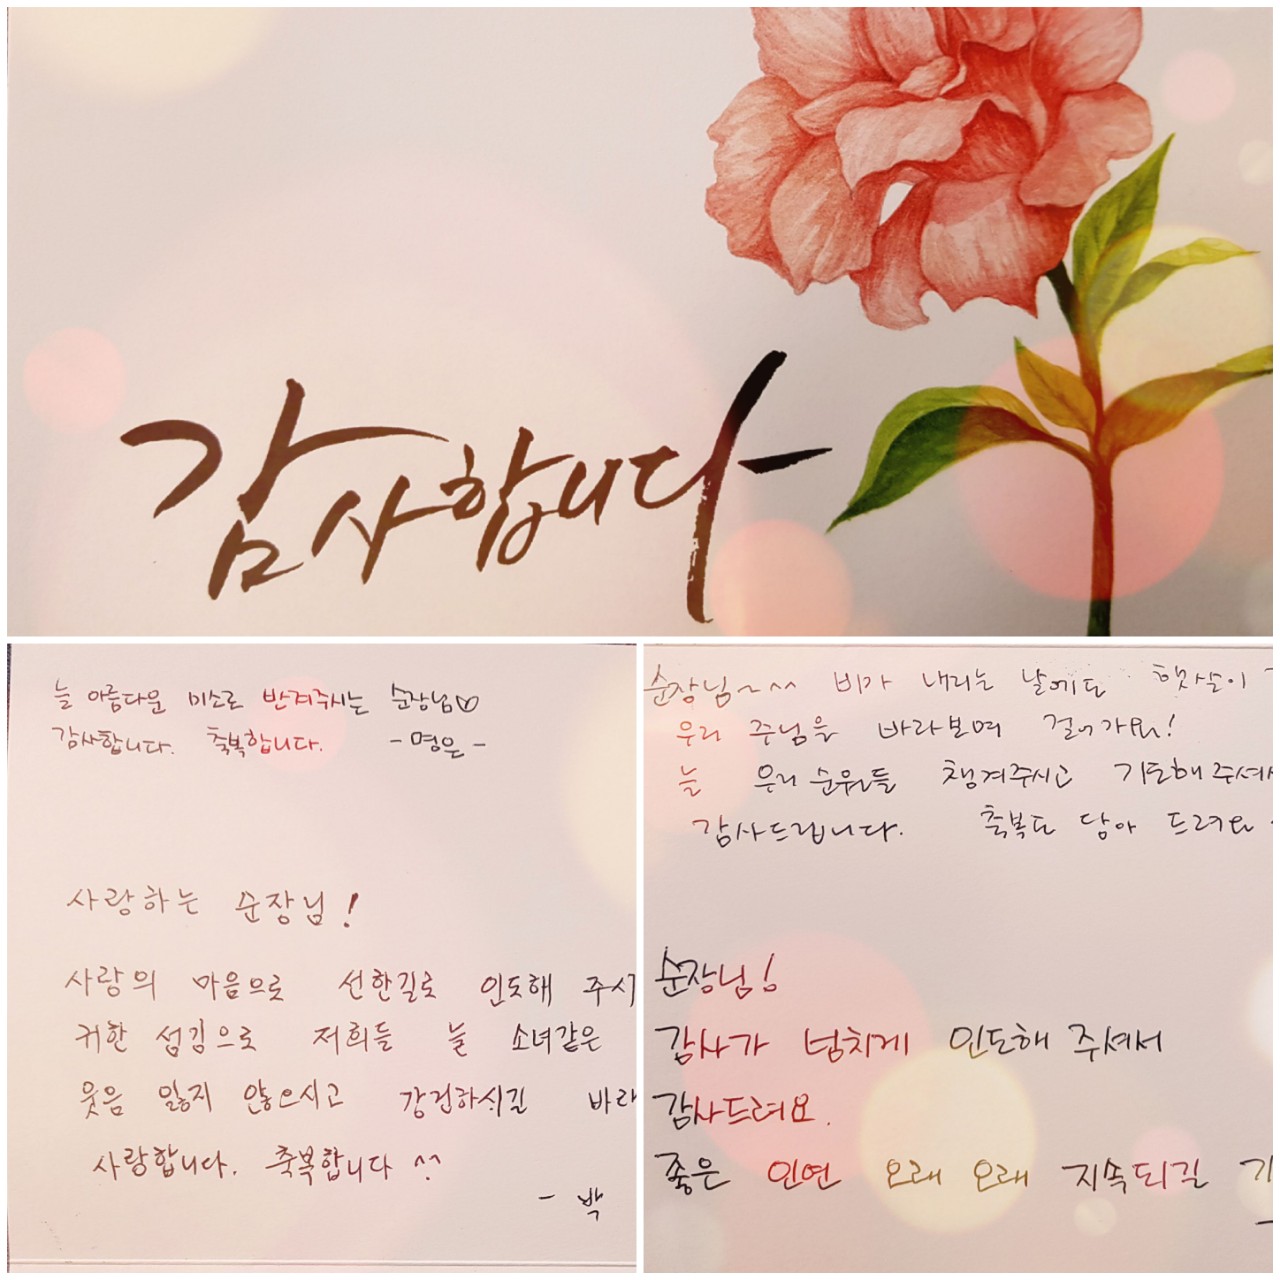 감사합니다
늘 아름다운 미소로 반겨주시는 순장님♡
감사합니다. 축복합니다. -명은-
사랑하는 순장님!
사랑의 마음으로 선한길로 인도해 주시
귀한 섬김으로 저희들 늘 소녀같은
웃음 잃지 않으시고 강건하시길 바라
사랑합니다. 축복합니다 ^^
- 박
순장님~^^ 비가 내리는 날에도 햇살이
우리 주님을 바라보며 걸어가요!
늘 우리 순원들 챙겨주시고 기도해주셔서
감사드립니다. 축복도 담아 드려요
순장님!
감사가 넘치게 인도해 주셔서
감사드려요.
좋은 인연 오래 오래 지속되길